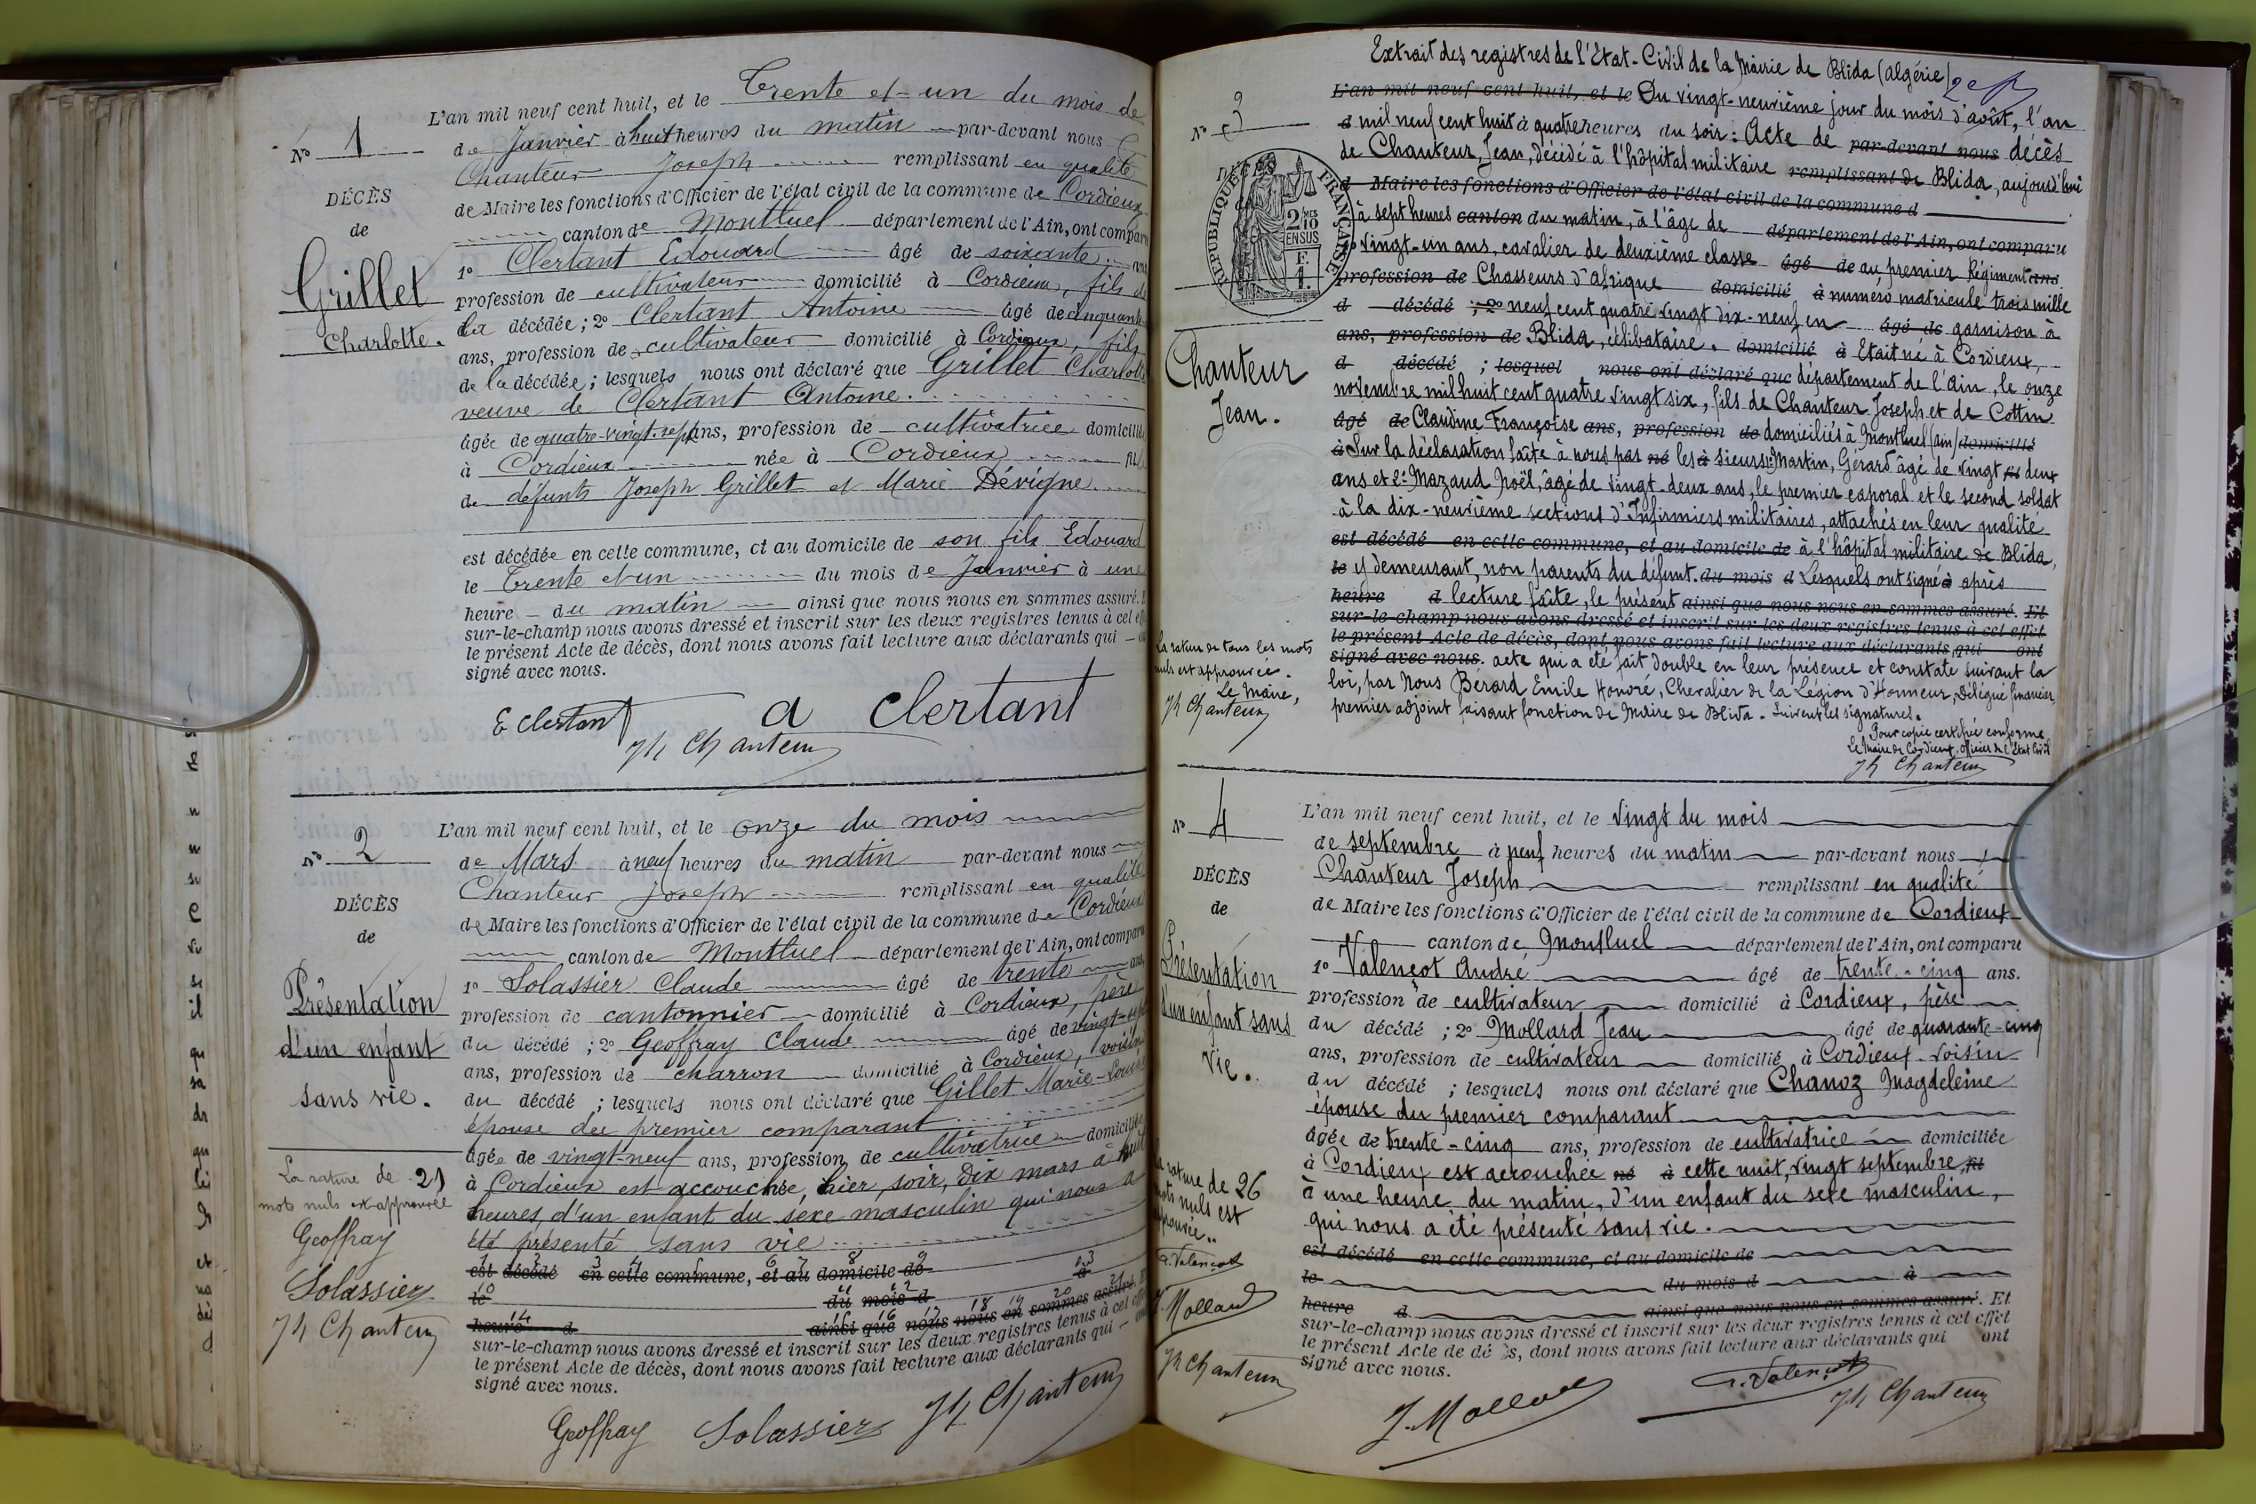 L'an mil neuf cent huit, et le Trente et un du mois de
N° 1
de Janvier à huit heures du matin par-devant nous
Chanteur Joseph remplissant en qualité
DÉCÈS
de Maire les fonctions d'Officier de l'état civil de la commune de Cordieux
de
canton de Montluel département de l'Ain, ont comparu
Grillet
Charlotte.
1° Clertant Edouard âgé de soixante
profession de cultivateur domicilié à Cordieux, fils de
la décédée ; 2° Clertant Antoine âgé de cinquante
ans, profession de cultivateur domicilié à Cordieux, fils
de la décédée ; lesquels nous ont déclaré que Grillet Charlotte
veuve de Clertant Antoine.
âgée de quatre-vingt-sept ans, profession de cultivatrice domiciliée
à Cordieux née à Cordieux
de défunts Joseph Grillet et Marie Dévigne
est décédée en cette commune, et au domicile de son fils Edouard
le Trente et un du mois de Janvier à une
heure du matin ainsi que nous nous en sommes assuré.
sur-le-champ nous avons dressé et inscrit sur les deux registres tenus à cet effet
le présent Acte de décès, dont nous avons fait lecture aux déclarants qui
signé avec nous.
E Clertant A Clertant
Jh Chanteur
N° 2
L'an mil neuf cent huit, et le onze du mois
de Mars à neuf heures du matin par-devant nous
Chanteur Joseph remplissant en qualité
DÉCÈS
de Maire les fonctions d'Officier de l'état civil de la commune de Cordieux
de
canton de Montluel département de l'Ain, ont comparu
Présentation
d'un enfant
sans vie.
1° Solassier Claude âgé de trente ans,
profession de cantonnier domicilié à Cordieux, père
du décédé ; 2° Geoffray Claude âgé de vingt-sept
ans, profession de charron domicilié à Cordieux, voisin
du décédé ; lesquels nous ont déclaré que Gillet Marie-Louise
épouse du premier comparant
âgée de vingt-neuf ans, profession de cultivatrice domiciliée
à Cordieux est accouchée, hier, soir, dix mars à huit
heures, d'un enfant du sexe masculin qui nous a
été présenté sans vie
est décédé en cette commune, et au domicile de
le du mois d à
heure d ainsi que nous nous en sommes assuré. Et
sur-le-champ nous avons dressé et inscrit sur les deux registres tenus à cet effet
le présent Acte de décès, dont nous avons fait lecture aux déclarants qui
signé avec nous.
La rature de 21
mots nuls est approuvée
Geoffray
Solassier
Jh Chanteur
Geoffray Solassier Jh Chanteur
Extrait des registres de l'Etat-Civil de la Mairie de Blida (Algérie)
N° 3
L'an mil neuf cent huit, et le Du vingt-neuvième jour du mois d'août, l'an
d mil neuf cent huit à quatre heures du soir : Acte de par-devant nous décès
de Chanteur, Jean, décédé à l'hôpital militaire remplissant de Blida, aujourd'hui
d Maire les fonctions d'Officier de l'état civil de la commune d
à sept heures canton du matin, à l'âge de département de l'Ain, ont comparu
1° vingt-un ans, cavalier de deuxième classe âgé de au premier Régiment ans
profession de Chasseurs d'Afrique domicilié à numéro matricule trois mille
d décédé ; 2° neuf cent quatre vingt dix-neuf en âgé de garnison à
ans, profession de Blida, célibataire. domicilié à Etait né à Cordieux,
d décédé ; lesquel nous ont déclaré que département de l'Ain, le onze
novembre mil huit cent quatre vingt six, fils de Chanteur Joseph et de Cottin
âgé de Claudine Françoise ans, profession de domiciliés à Montluel (Ain) domicilié
à Sur la déclaration faite à nous par né les à sieurs: Martin, Gérard âgé de vingt fil deux
ans et 2° Mazaud Noël, âgé de vingt-deux ans, le premier caporal et le second soldat
à la dix-neuvième sections d'Infirmiers militaires, attachés en leur qualité
est décédé en cette commune, et au domicile de à l'hôpital militaire de Blida,
le y demeurant, non parents du défunt. du mois d Lesquels ont signé à après
heure d lecture faite, le présent ainsi que nous nous en sommes assuré. Et
sur-le-champ nous avons dressé et inscrit sur les deux registres tenus à cet effet
le présent Acte de décès, dont nous avons fait lecture aux déclarants qui ont
signé avec nous. acte qui a été fait double en leur présence et constaté suivant la
loi, par Nous Bérard Emile Honoré, Chevalier de la Légion d'Honneur, Délégué financier,
premier adjoint faisant fonction de Maire de Blida. Suivent les signatures.
Pour copie certifiée conforme
Le Maire de Cordieux, officier de l'Etat Civil
Jh Chanteur
RÉPUBLIQUE FRANÇAISE
2/10 EN SUS
F. 1.
Chanteur
Jean.
La rature de tous les mots
nuls est approuvée.
Le Maire,
Jh Chanteur
N° 4
L'an mil neuf cent huit, et le vingt du mois
de septembre à neuf heures du matin par-devant nous
Chanteur Joseph remplissant en qualité
DÉCÈS
de Maire les fonctions d'Officier de l'état civil de la commune de Cordieux
de
canton de Montluel département de l'Ain, ont comparu
Présentation
d'un enfant sans
vie.
1° Valençot André âgé de trente-cinq ans.
profession de cultivateur domicilié à Cordieux, père
du décédé ; 2° Mollard Jean âgé de quarante-cinq
ans, profession de cultivateur domicilié à Cordieux voisin
du décédé ; lesquels nous ont déclaré que Chanoz Magdeleine
épouse du premier comparant
âgée de trente-cinq ans, profession de cultivatrice domiciliée
à Cordieux est accouchée né à cette nuit, vingt septembre, fil
à une heure du matin, d'un enfant du sexe masculin,
qui nous a été présenté sans vie.
est décédé en cette commune, et au domicile de
le du mois d à
heure d ainsi que nous nous en sommes assuré. Et
sur-le-champ nous avons dressé et inscrit sur les deux registres tenus à cet effet
le présent Acte de décès, dont nous avons fait lecture aux déclarants qui ont
signé avec nous.
La rature de 26
mots nuls est
approuvée..
A. Valençot
J. Mollard
Jh Chanteur
J. Mollard A. Valençot Jh Chanteur